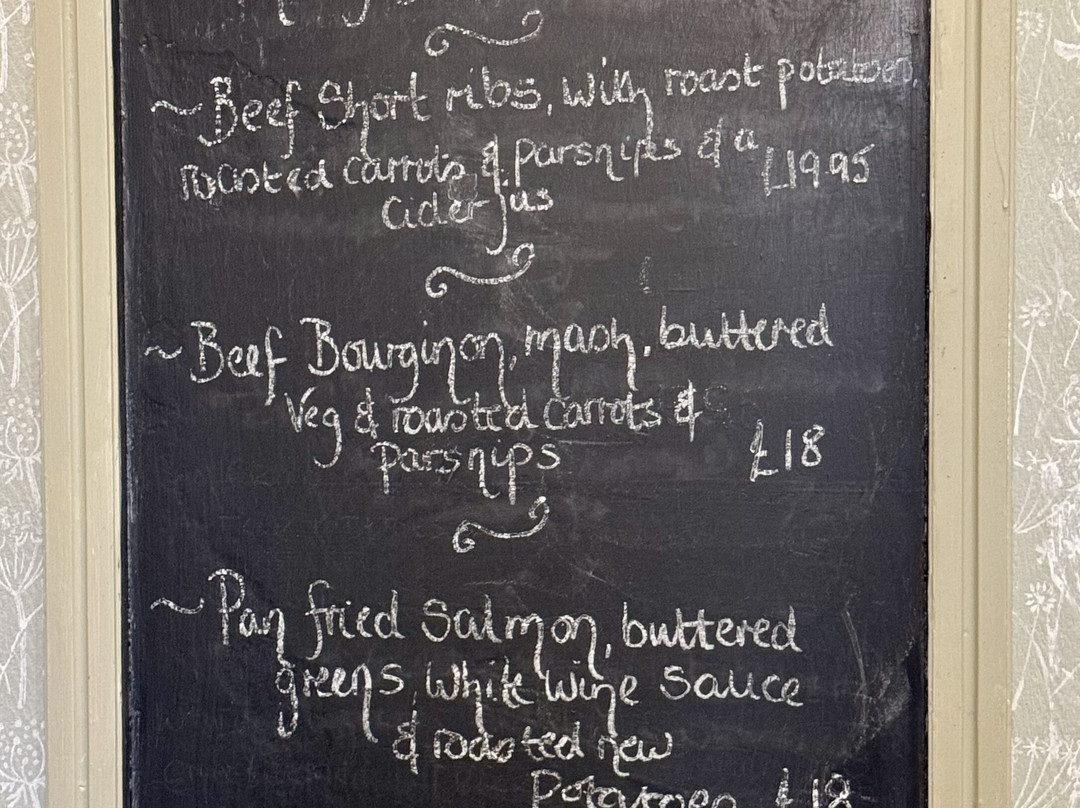 ~Beef Short ribs, with roast potatoes,
roasted carrots & parsnips & a £19.95
Cider jus
~ Beef Bourginon, mash, buttered
Veg & roasted carrots &
parsnips £18
~ Pan fried Salmon, buttered
greens, white wine Sauce
& roasted new
Potatoes £18